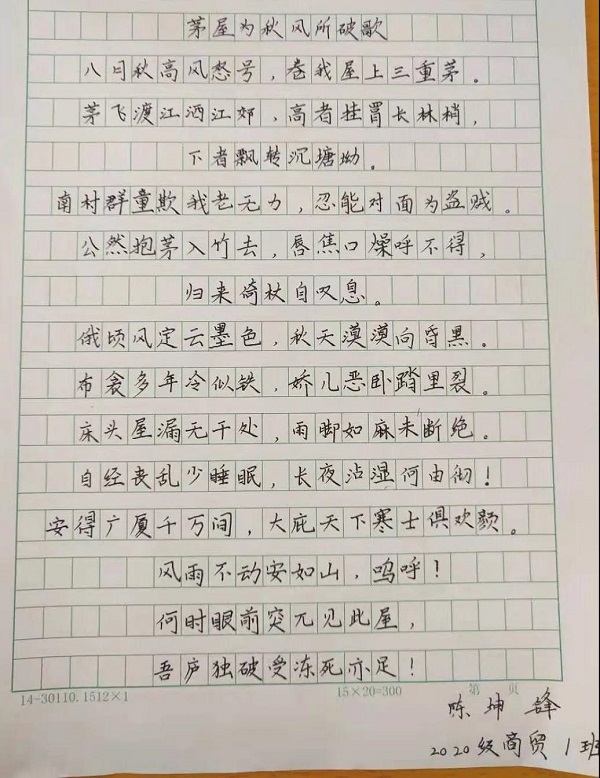 茅屋为秋风所破歌
八月秋高风怒号，卷我屋上三重茅。
茅飞渡江洒江郊，高者挂罥长林梢，
下者飘转沉塘坳。
南村群童欺我老无力，忍能对面为盗贼。
公然抱茅入竹去，唇焦口燥呼不得，
归来倚杖自叹息。
俄顷风定云墨色，秋天漠漠向昏黑。
布衾多年冷似铁，娇儿恶卧踏里裂。
床头屋漏无干处，雨脚如麻未断绝。
自经丧乱少睡眠，长夜沾湿何由彻！
安得广厦千万间，大庇天下寒士俱欢颜。
风雨不动安如山，呜呼！
何时眼前突兀见此屋，
吾庐独破受冻死亦足！
14-30110.1512×1 15×20=300 第 页
陈坤锋
2020级商贸1班